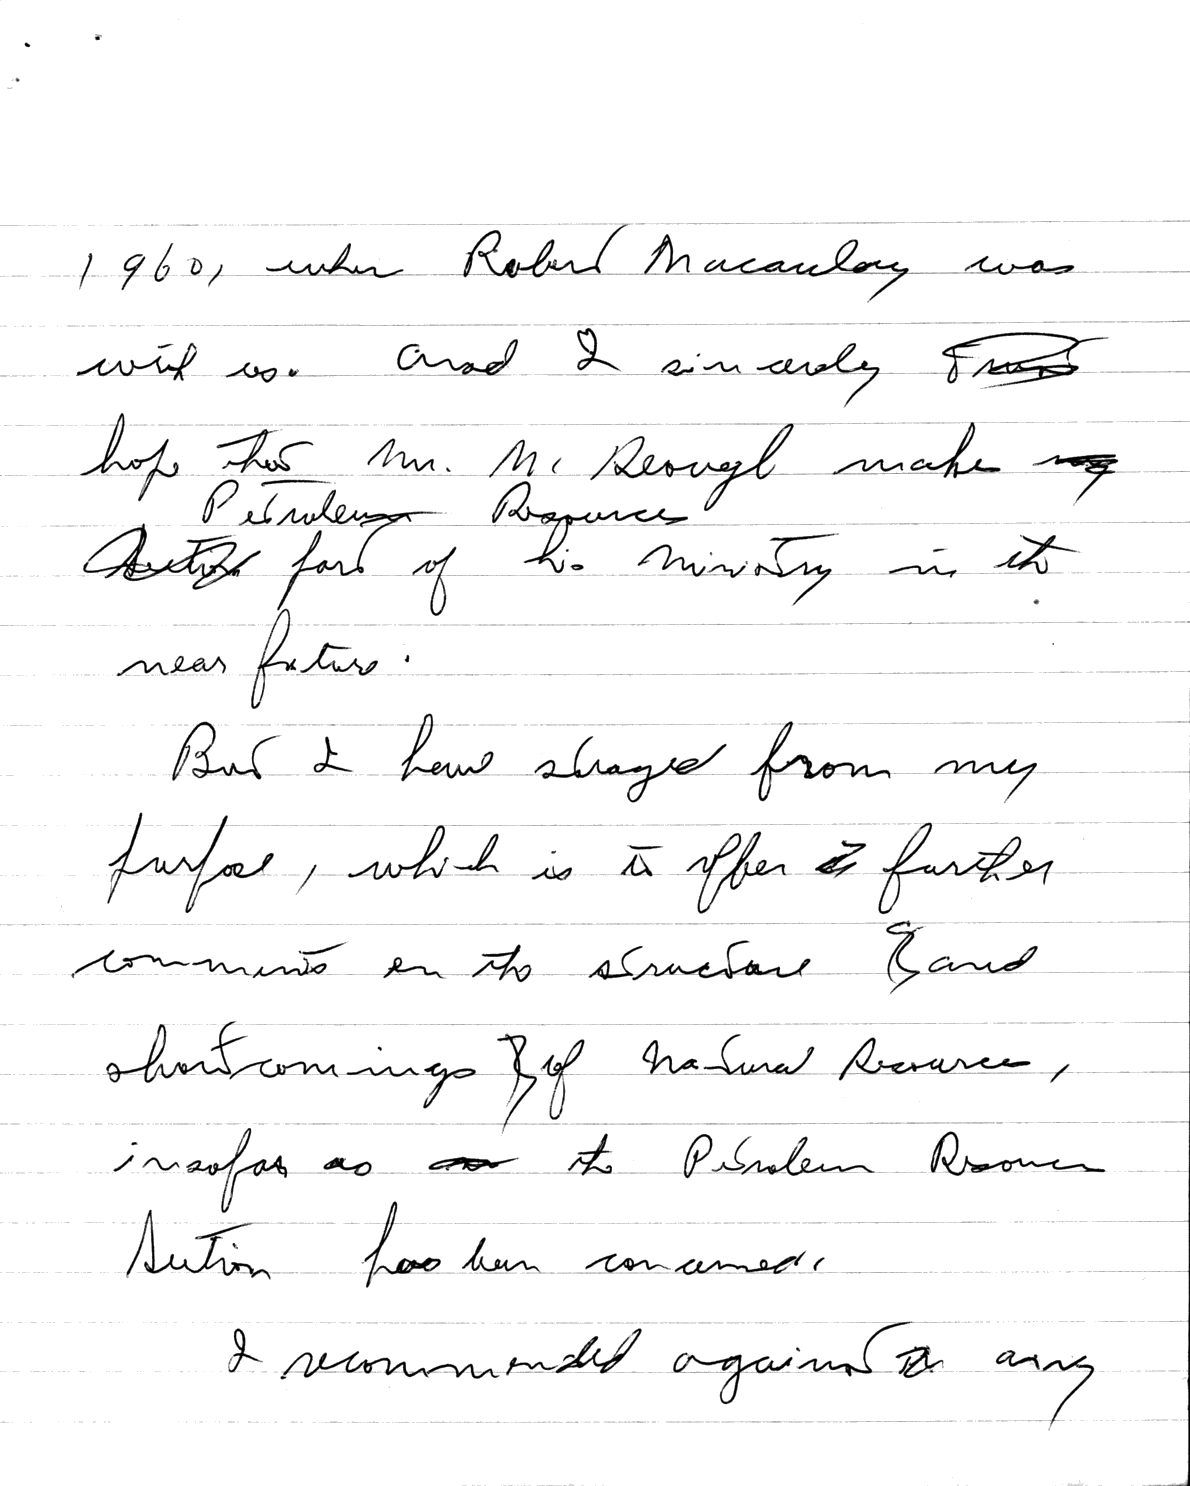 1960, when Robert Macaulay was
with us. And I sincerely
hope that Mr. McKeough make
Petroleum Resources
Section part of his Ministry in the
near future.
But I have strayed from my
purpose, which is to offer further
comments on the structure { and
shortcomings } of Natural Resources,
insofar as the Petroleum Resources
Section has been concerned.
I recommended against any